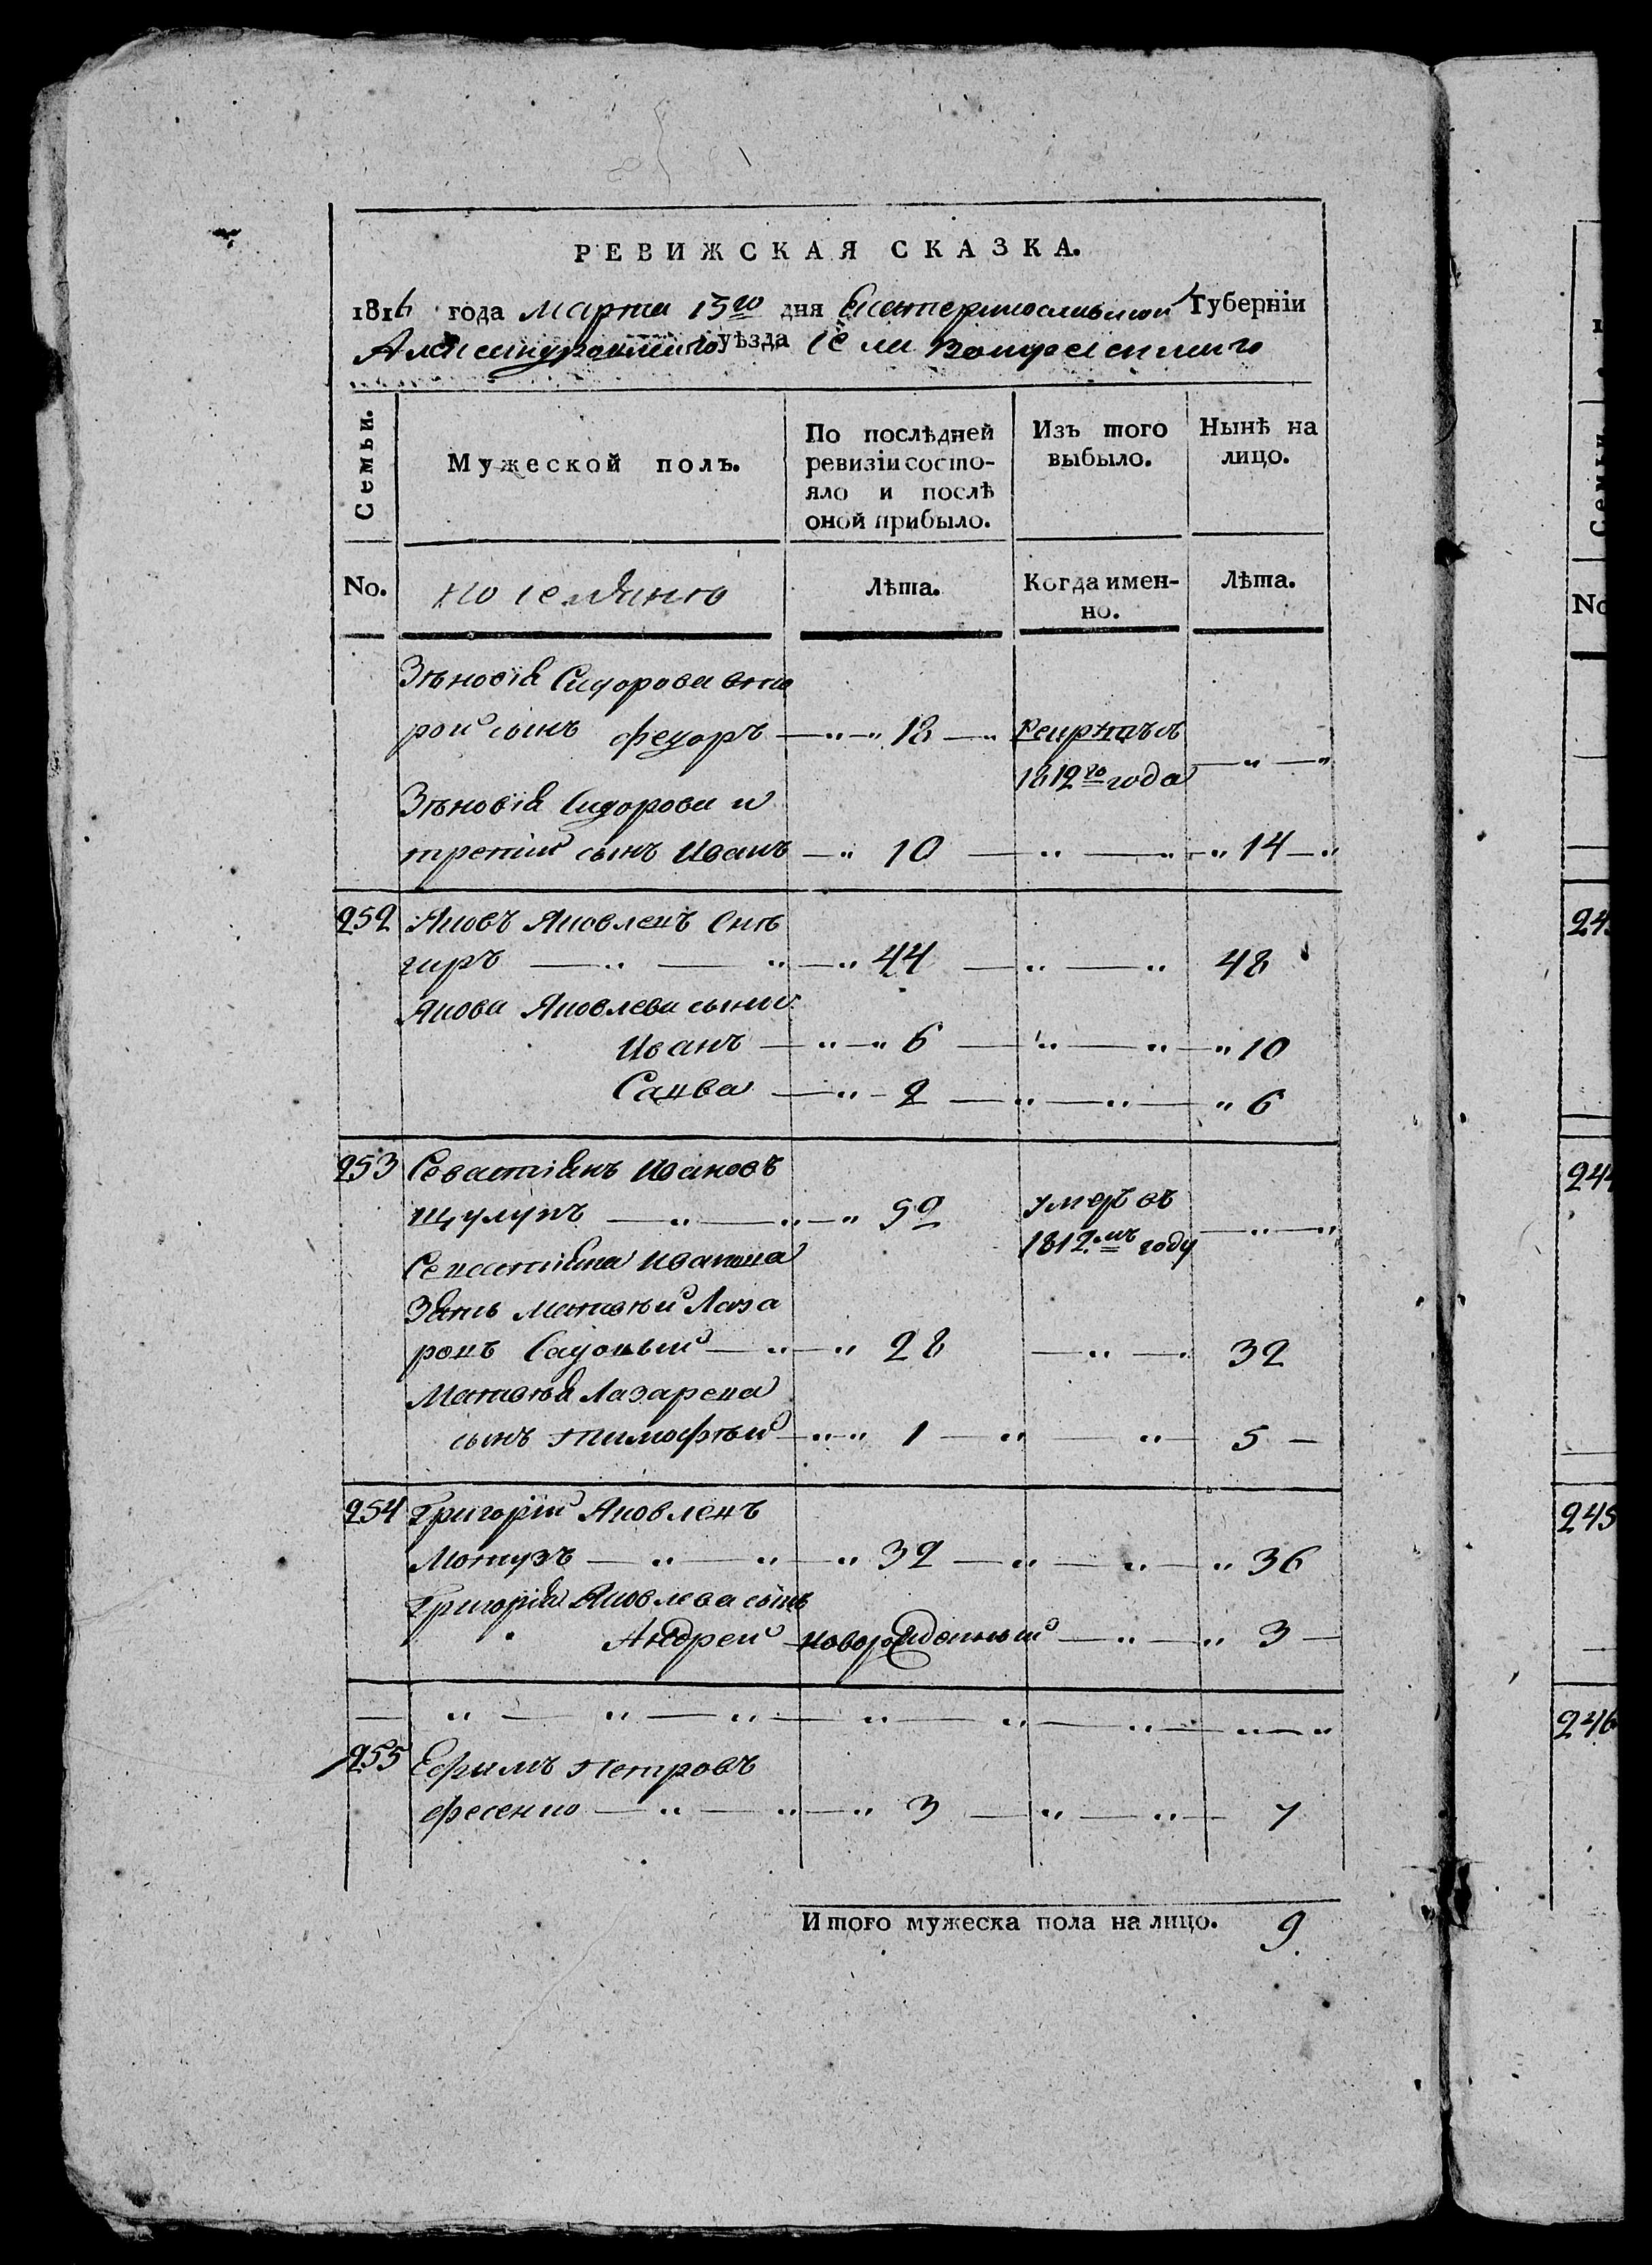 РЕВИЖСКАЯ СКАЗКА.
1816 года Марта 15го дня Екатеринославской Губерніи
Александровскаго уѣзда села Вознесенскаго
Семьи.
Мужеской полъ.
По послѣдней ревизіи состо-
яло и послѣ
оной прибыло.
Изъ того
выбыло.
Нынѣ на
лицо.
No.
Лѣта.
Когда имен-
но.
Лѣта.
Зѣновія Сидорова вто
рой сынъ Федоръ — 18 — Рекрутъ съ
1812го года — " — "
Зѣновія Сидорова и
третій сынъ Иванъ — " 10 — " — " — " 14 — "
252 Яковъ Яковлевъ Снѣ
гиръ — " — " — " 44 — " — " 48
Якова Яковлева сыны
Иванъ — " — " 6 — " — " — " 10
Савва — " — 2 — " — " — " 6
253 Севастіянъ Ивановъ
Щулупъ — " — " — " 59 умеръ въ
1812мъ году — " — "
Севастіяна Иванова
Зять Матвѣй Лаза
ровъ Садовый — " — " 28 — " — 32
Матвѣя Лазарева
сынъ Тимофѣй — " — " 1 — " — " — 5 —
254 Григорій Яковлевъ
Мотузъ — " — " — " 32 — " — " — " 36
Григорія Яковлева сынъ
Андрей новорожденный — " — " 3 —
— " — " — " — " — " — " — " — "
255 Ефимъ Петровъ
Фесенко — " — " — " 3 — " — " — 7
Итого мужеска пола на лицо. 9.
No
244
245
246